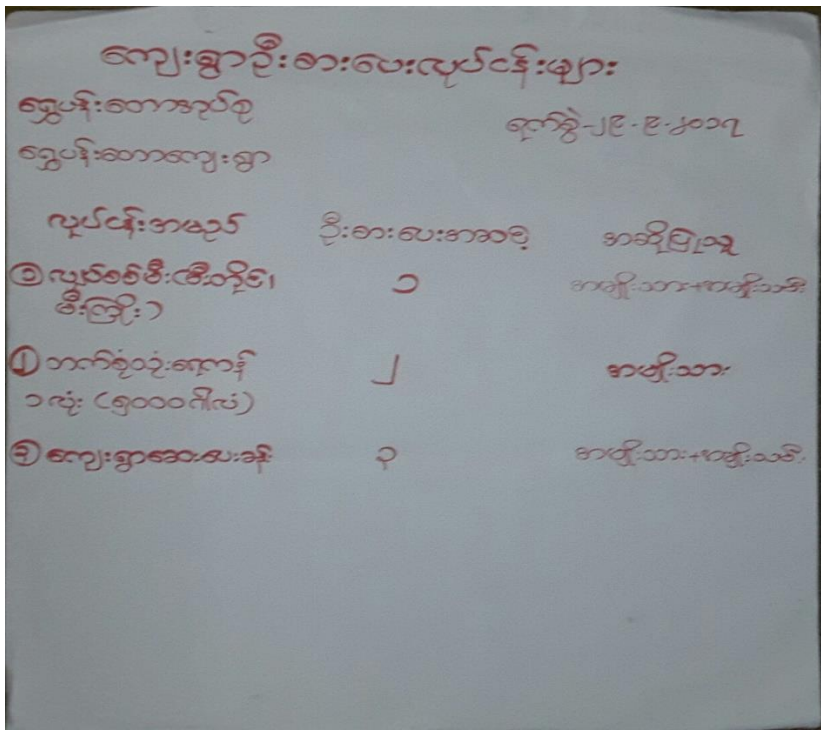 ကျေးရွာဦးစားပေးလုပ်ငန်းများ
ရွှေပန်းတောအုပ်စု ရက်စွဲ-၂၉-၉-၂၀၁၇
ရွှေပန်းတောကျေးရွာ
လုပ်ငန်းအမည် ဦးစားပေးအဆင့် အဆိုပြုသူ
၁ လျှပ်စစ်မီး(မီးတိုင်၊ ၁ အမျိုးသား+အမျိုးသမီး
မီးကြိုး)
၂ ဘက်စုံသုံးရေကန် ၂ အမျိုးသား
၁လုံး (၅၀၀၀ဂါလံ)
၃ ကျေးရွာဆေးပေးခန်း ၃ အမျိုးသား+အမျိုးသမီး